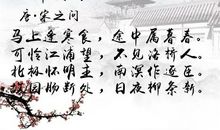 唐·宋之问
马上逢寒食，途中属暮春。
可怜江浦望，不见洛桥人。
北极怀明主，南溟作逐臣。
故园肠断处，日夜柳条新。